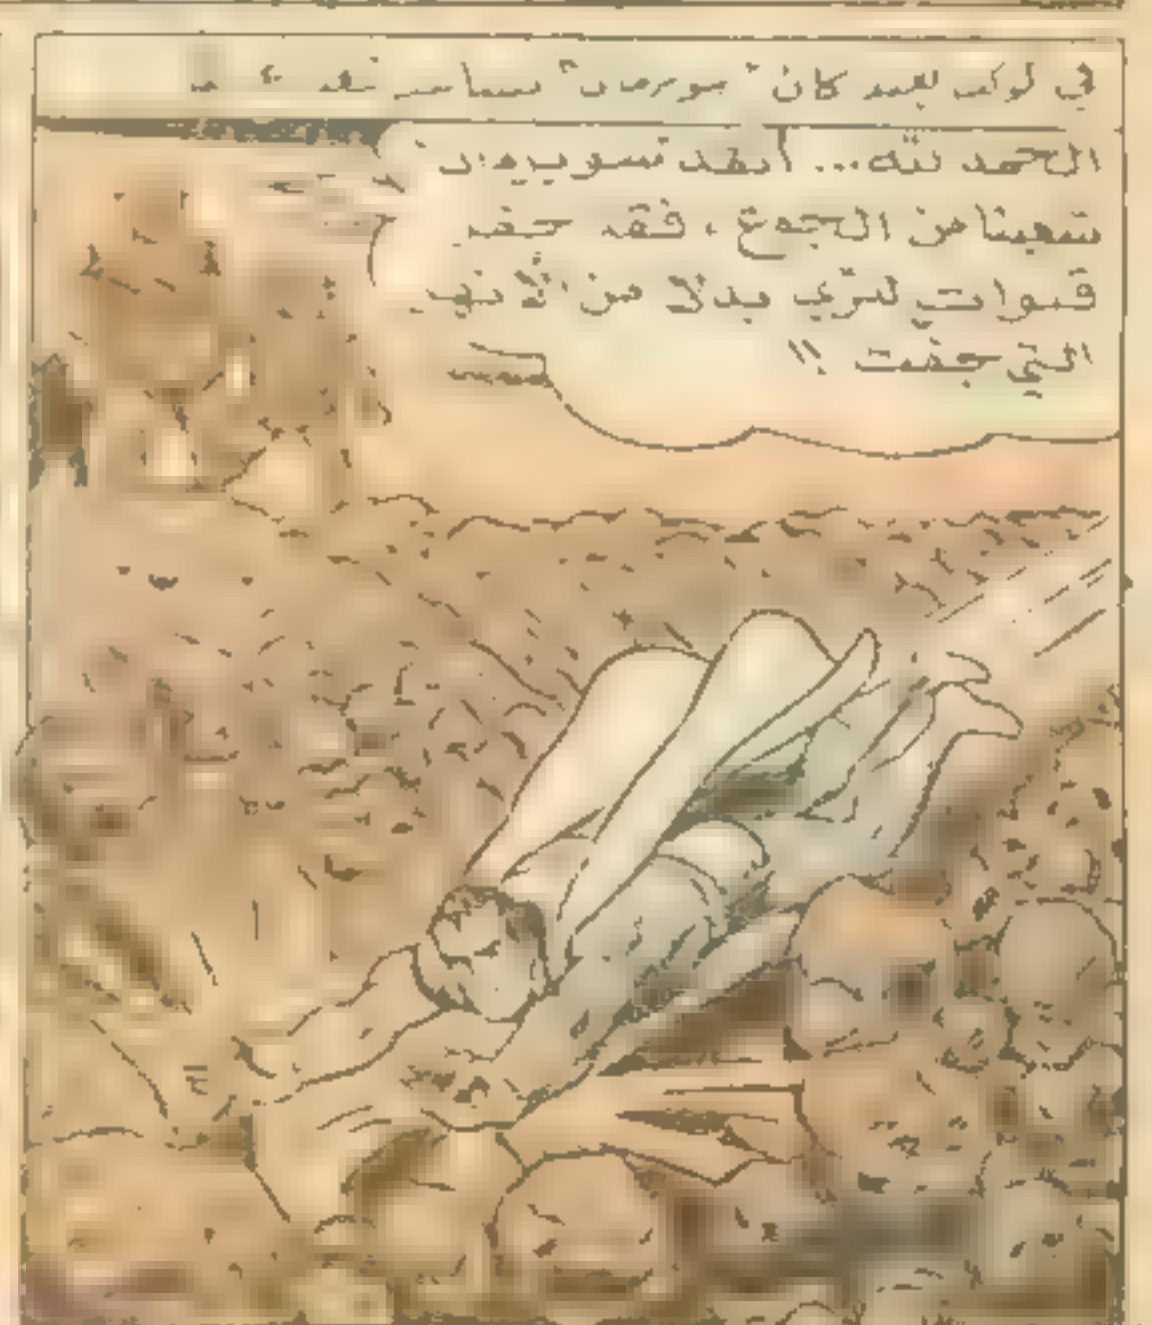 في كوكب بعيد كان "سوبرمان"
الحمد لله... أنقذ سوبرمان
شعبنا من الجوع ، فقد حفر
قنوات للري بدلا من الأنهر
التي جفت !!